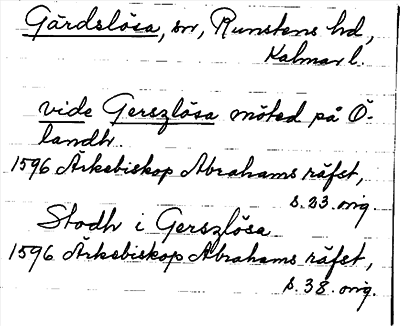 Gärdslösa, sn, Runstens hd,
Kalmar l.
vide Gerszlösa möted på Ö-
landh.
1596 Ärkebiskop Abrahams räfst,
s. 23. orig.
Stodh i Gerszlösa
1596 Ärkebiskop Abrahams räfst,
s. 38. orig.